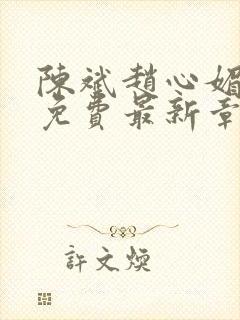 陳斌趙心媚
免費最新章
許文煥